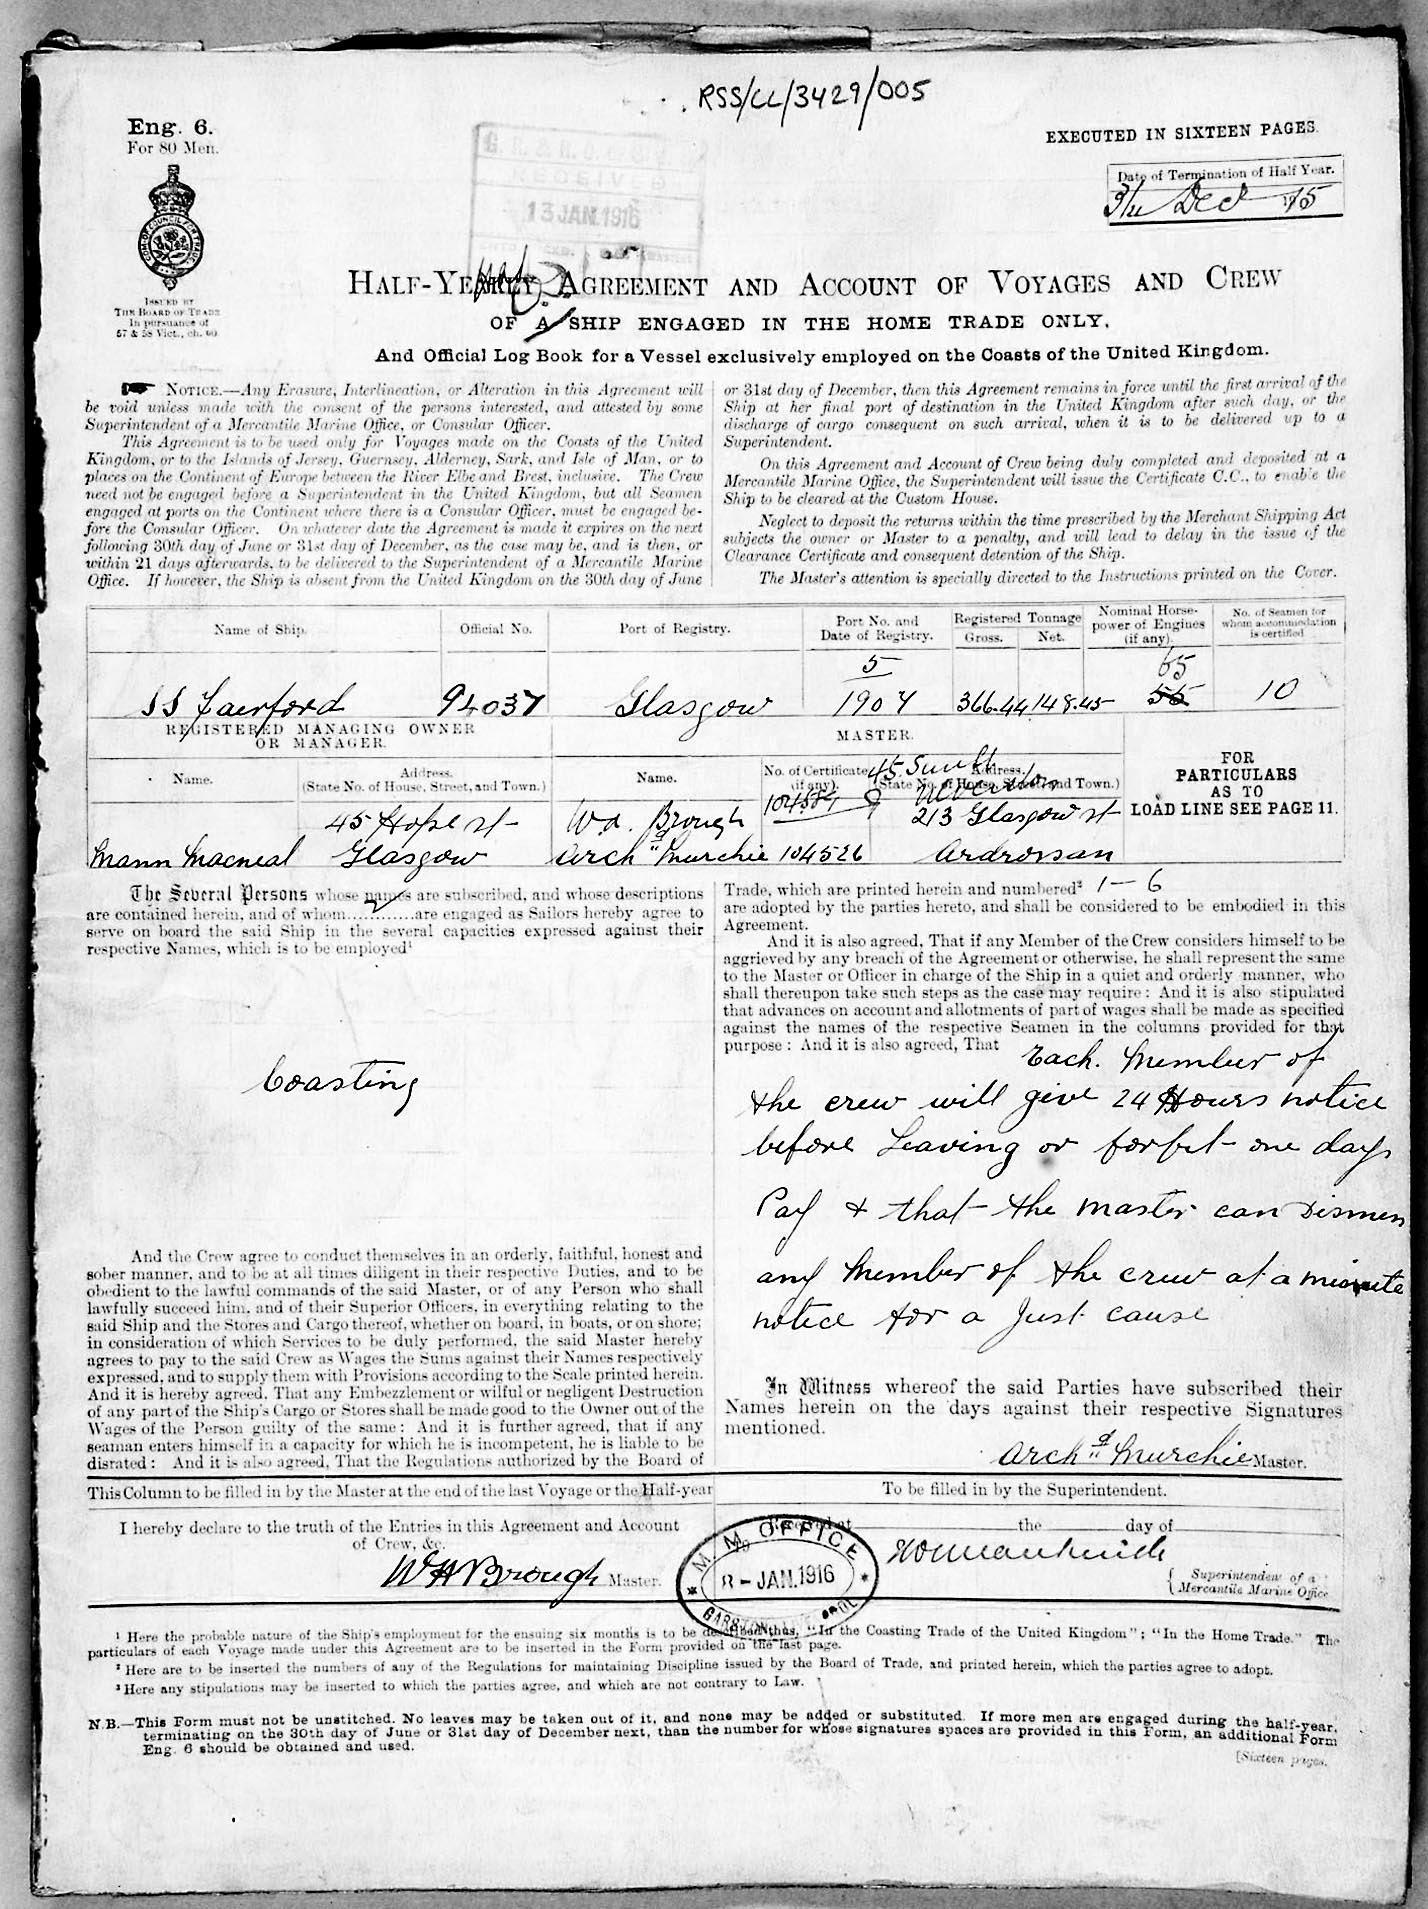 RSS/CL/3429/005
Eng. 6.
For 80 Men.
EXECUTED IN SIXTEEN PAGES.
Date of Termination of Half Year.
31st Dec 15
13 JAN. 1916
ISSUED BY
THE BOARD OF TRADE
In pursuance of
57 & 58 Vict., ch. 60.
HALF-YEARLY AGREEMENT AND ACCOUNT OF VOYAGES AND CREW
OF A SHIP ENGAGED IN THE HOME TRADE ONLY,
And Official Log Book for a Vessel exclusively employed on the Coasts of the United Kingdom.
NOTICE.—Any Erasure, Interlineation, or Alteration in this Agreement will
be void unless made with the consent of the persons interested, and attested by some
Superintendent of a Mercantile Marine Office, or Consular Officer.
This Agreement is to be used only for Voyages made on the Coasts of the United
Kingdom, or to the Islands of Jersey, Guernsey, Alderney, Sark, and Isle of Man, or to
places on the Continent of Europe between the River Elbe and Brest, inclusive. The Crew
need not be engaged before a Superintendent in the United Kingdom, but all Seamen
engaged at ports on the Continent where there is a Consular Officer, must be engaged be-
fore the Consular Officer. On whatever date the Agreement is made it expires on the next
following 30th day of June or 31st day of December, as the case may be, and is then, or
within 21 days afterwards, to be delivered to the Superintendent of a Mercantile Marine
Office. If however, the Ship is absent from the United Kingdom on the 30th day of June
or 31st day of December, then this Agreement remains in force until the first arrival of the
Ship at her final port of destination in the United Kingdom after such day, or the
discharge of cargo consequent on such arrival, when it is to be delivered up to a
Superintendent.
On this Agreement and Account of Crew being duly completed and deposited at a
Mercantile Marine Office, the Superintendent will issue the Certificate C.C., to enable the
Ship to be cleared at the Custom House.
Neglect to deposit the returns within the time prescribed by the Merchant Shipping Act
subjects the owner or Master to a penalty, and will lead to delay in the issue of the
Clearance Certificate and consequent detention of the Ship.
The Master's attention is specially directed to the Instructions printed on the Cover.
Name of Ship. Official No. Port of Registry. Port No. and Date of Registry. Registered Tonnage Gross. Net. Nominal Horse-power of Engines (if any). No. of Seamen for whom accommodation is certified
5 65
SS Fairford 94037 Glasgow 1907 366.44 148.45 55 10
REGISTERED MANAGING OWNER
OR MANAGER.
MASTER.
Name. Address. (State No. of House, Street, and Town.) Name. No. of Certificate (if any). Address. (State No. of House, Street, and Town.)
45 Hope st W.A. Brough 213 Glasgow st
Mann Macneal Glasgow Archd Murchie 104526 Ardrossan
FOR
PARTICULARS
AS TO
LOAD LINE SEE PAGE 11.
The Several Persons whose names are subscribed, and whose descriptions
are contained herein, and of whom............are engaged as Sailors hereby agree to
serve on board the said Ship in the several capacities expressed against their
respective Names, which is to be employed¹
Coasting
And the Crew agree to conduct themselves in an orderly, faithful, honest and
sober manner, and to be at all times diligent in their respective Duties, and to be
obedient to the lawful commands of the said Master, or of any Person who shall
lawfully succeed him, and of their Superior Officers, in everything relating to the
said Ship and the Stores and Cargo thereof, whether on board, in boats, or on shore;
in consideration of which Services to be duly performed, the said Master hereby
agrees to pay to the said Crew as Wages the Sums against their Names respectively
expressed, and to supply them with Provisions according to the Scale printed herein.
And it is hereby agreed, That any Embezzlement or wilful or negligent Destruction
of any part of the Ship's Cargo or Stores shall be made good to the Owner out of the
Wages of the Person guilty of the same: And it is further agreed, that if any
seaman enters himself in a capacity for which he is incompetent, he is liable to be
disrated: And it is also agreed, That the Regulations authorized by the Board of
Trade, which are printed herein and numbered² 1 — 6
are adopted by the parties hereto, and shall be considered to be embodied in this
Agreement.
And it is also agreed, That if any Member of the Crew considers himself to be
aggrieved by any breach of the Agreement or otherwise, he shall represent the same
to the Master or Officer in charge of the Ship in a quiet and orderly manner, who
shall thereupon take such steps as the case may require: And it is also stipulated
that advances on account and allotments of part of wages shall be made as specified
against the names of the respective Seamen in the columns provided for that
purpose: And it is also agreed, That Each Member of
the crew will give 24 Hours notice
before Leaving or forfit one days
Pay & that the master can Dismiss
any Member of the crew at a minute
notice for a Just cause
In Witness whereof the said Parties have subscribed their
Names herein on the days against their respective Signatures
mentioned.
Archd Murchie Master.
This Column to be filled in by the Master at the end of the last Voyage or the Half-year
I hereby declare to the truth of the Entries in this Agreement and Account
of Crew, &c.
WH Brough Master.
To be filled in by the Superintendent.
Received at the day of
M. M. OFFICE
8 - JAN. 1916
Superintendent of a
Mercantile Marine Office
¹ Here the probable nature of the Ship's employment for the ensuing six months is to be described thus, "In the Coasting Trade of the United Kingdom"; "In the Home Trade." The
particulars of each Voyage made under this Agreement are to be inserted in the Form provided on the last page.
² Here are to be inserted the numbers of any of the Regulations for maintaining Discipline issued by the Board of Trade, and printed herein, which the parties agree to adopt.
³ Here any stipulations may be inserted to which the parties agree, and which are not contrary to Law.
N.B.—This Form must not be unstitched. No leaves may be taken out of it, and none may be added or substituted. If more men are engaged during the half-year,
terminating on the 30th day of June or 31st day of December next, than the number for whose signatures spaces are provided in this Form, an additional Form
Eng. 6 should be obtained and used.
[Sixteen pages.